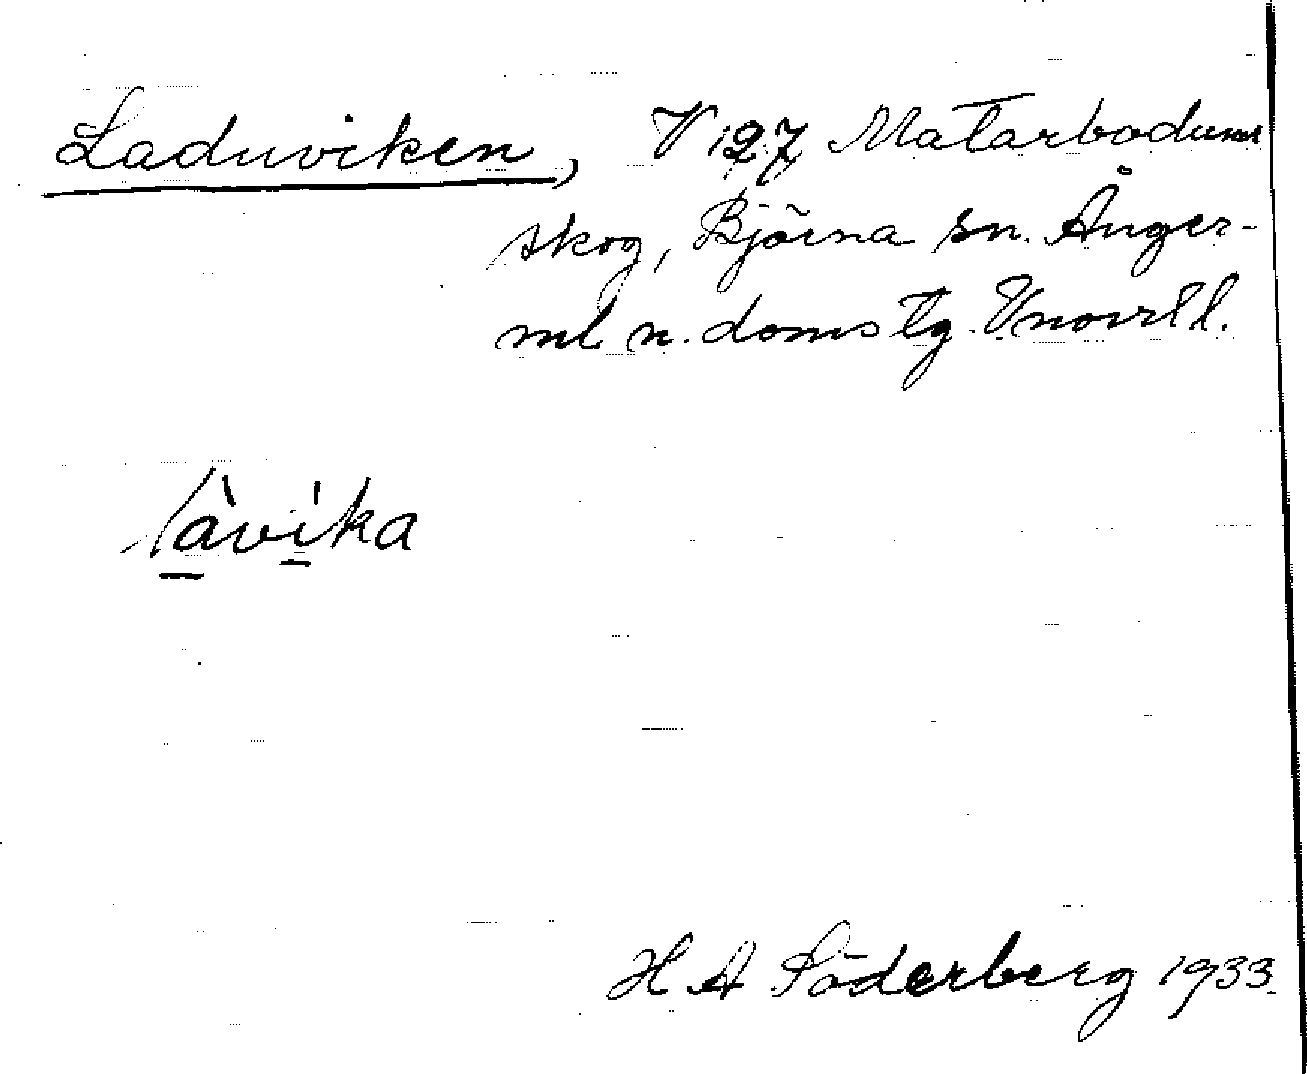 Laduviken, V 127 Matarbodum
skog, Björna sn. Ånger-
ml n. doms tg. Vnorrl l.
làvíka
H A Söderberg 1933